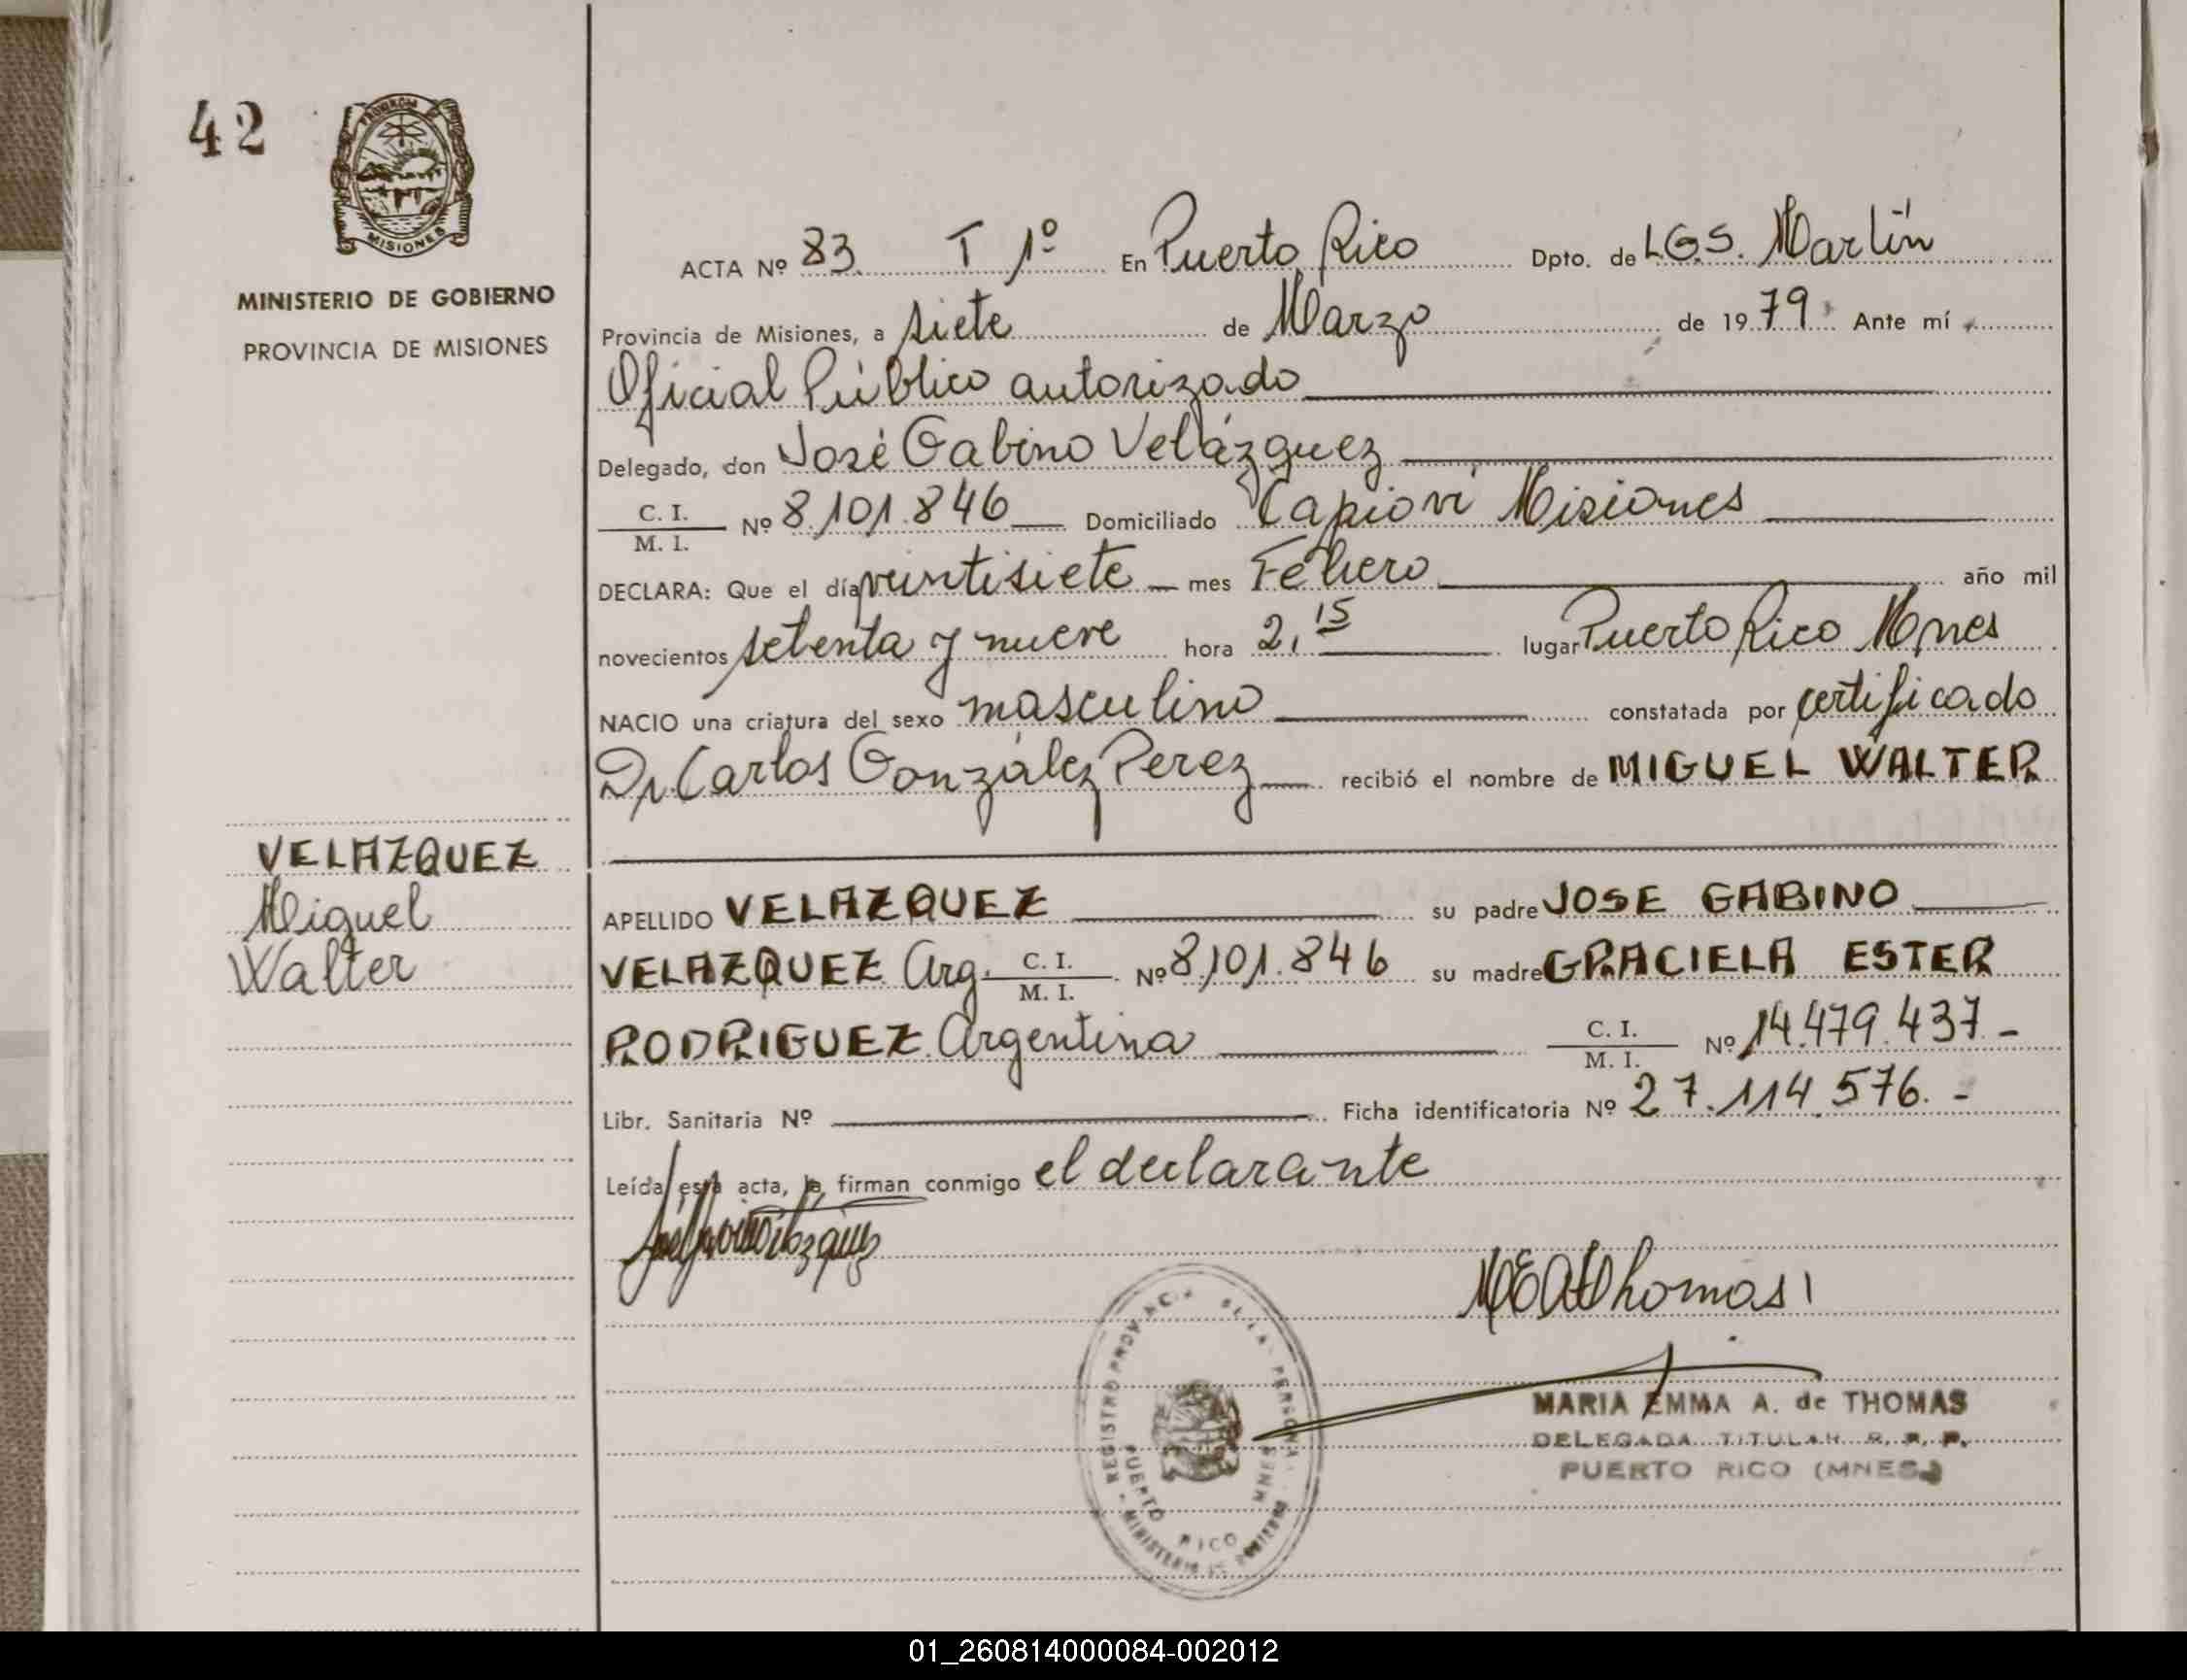 42
PROVINCIA
MISIONES
MINISTERIO DE GOBIERNO
PROVINCIA DE MISIONES
VELAZQUEZ
Miguel
Walter
ACTA Nº 83 T 1º En Puerto Rico Dpto. de L.G.S. Martín
Provincia de Misiones, a siete de Marzo de 1979 Ante mí
Oficial Público autorizado
Delegado, don José Gabino Velázquez
C. I. / M. I. Nº 8.101.846 Domiciliado Capioví Misiones
DECLARA: Que el día veintisiete mes Febrero año mil
novecientos setenta y nueve hora 2,15 lugar Puerto Rico Mnes
NACIO una criatura del sexo masculino constatada por certificado
Dr Carlos González Perez recibió el nombre de MIGUEL WALTER
APELLIDO VELAZQUEZ su padre JOSE GABINO
VELAZQUEZ Arg. C. I. / M. I. Nº 8.101.846 su madre GRACIELA ESTER
RODRIGUEZ Argentina C. I. / M. I. Nº 14.479.437.-
Libr. Sanitaria Nº Ficha identificatoria Nº 27.114.576.-
Leída esta acta, la firman conmigo el declarante
MEAdThomas
REGISTRO PROVINCIAL DE LAS PERSONAS
MINISTERIO DE GOBIERNO
PUERTO RICO MNES
MARIA EMMA A. de THOMAS
DELEGADA TITULAR R. P. P.
PUERTO RICO (MNES.)
01_260814000084-002012